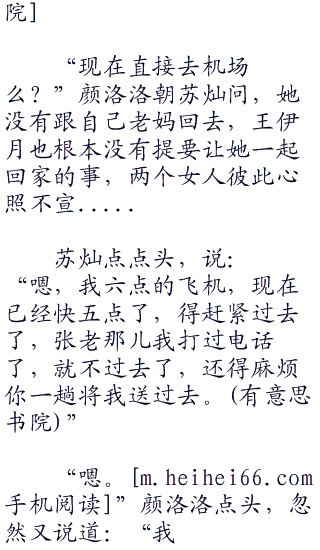 院]
“现在直接去机场
么？”颜洛洛朝苏灿问，她
没有跟自己老妈回去，王伊
月也根本没有提要让她一起
回家的事，两个女人彼此心
照不宣.....
苏灿点点头，说：
“嗯，我六点的飞机，现在
已经快五点了，得赶紧过去
了，张老那儿我打过电话
了，就不过去了，还得麻烦
你一趟将我送过去。(有意思
书院)”
“嗯。[m.heihei66.com
手机阅读]”颜洛洛点头，忽
然又说道：“我